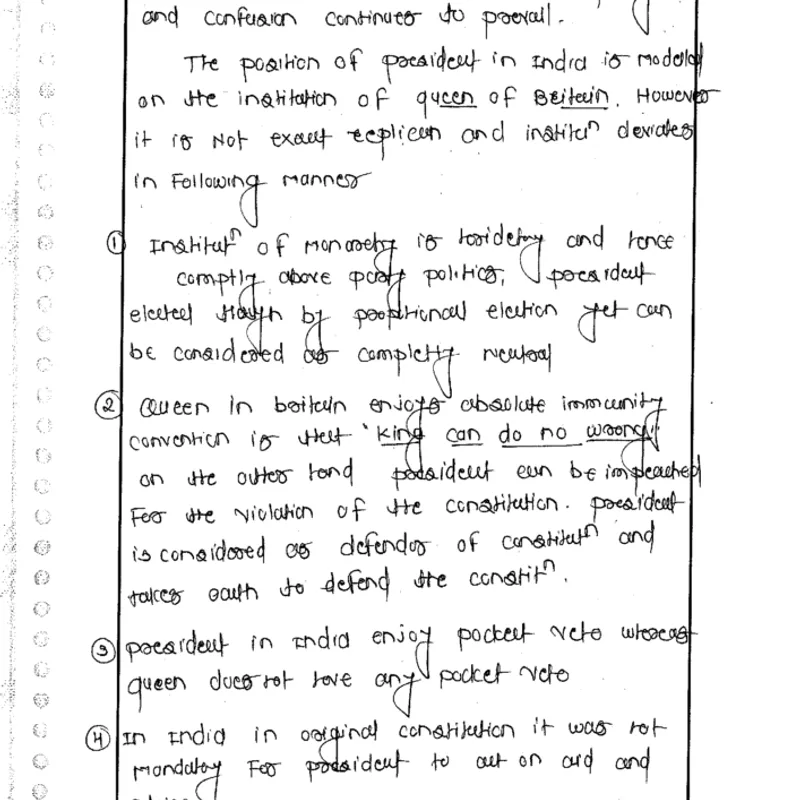 and confusion continues to prevail.
The position of president in India is modeled
on the institution of queen of Britain. However
it is not exact replican and institutn deviates
in following manner
① Institutn of monarchy is heridetry and hence
comptly above party politics, president
elected though by proptional election yet can
be considered as completly neutral
② Queen in britain enjoys absolute immunity
convention is that 'King can do no wrong'
on the other hand president can be impeached
for the violation of the constitution. president
is considered as defender of constitutn and
takes oath to defend the constitn.
③ president in India enjoy pocket veto whereas
queen does not have any pocket veto
④ In India in original constitution it was not
mandatory for president to act on aid and